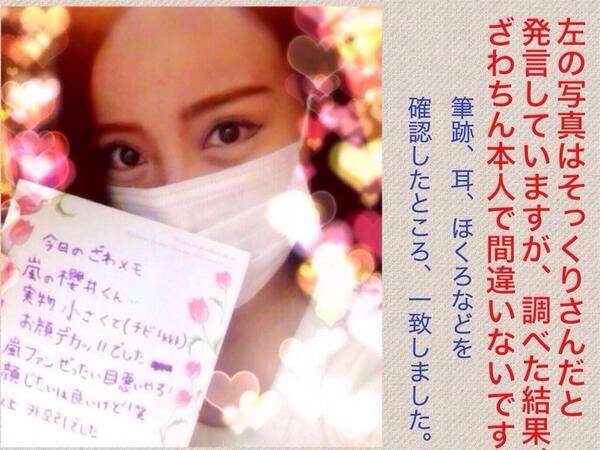 左の写真はそっくりさんだと
発言していますが、調べた結果、
ざわちん本人で間違いないです
筆跡、耳、ほくろなどを
確認したところ、一致しました。
今日のざわメモ
嵐の櫻井くん…
実物 小さくて(チビkkk)
お顔デカッ!!でした
嵐ファンぜったい目悪いやろ!
顔じたいは良いけど!笑